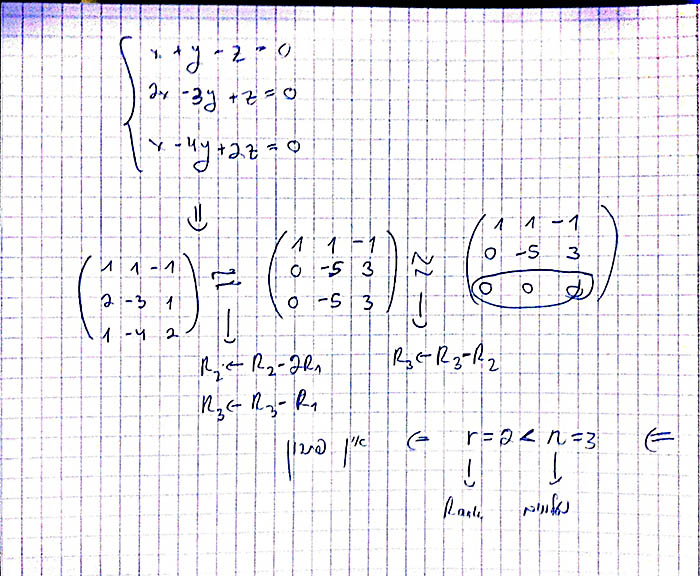 x + y - z = 0
2x - 3y + z = 0
x - 4y + 2z = 0
⇓
( 1 1 -1 ) ≈ ( 1 1 -1 ) ≈ ( 1 1 -1 )
( 2 -3 1 ) ( 0 -5 3 ) ( 0 -5 3 )
( 1 -4 2 ) ( 0 -5 3 ) ( 0 0 0 )
R2 ← R2 - 2R1 R3 ← R3 - R2
R3 ← R3 - R1
⇐ r = 2 < n = 3 ⇐
Rank